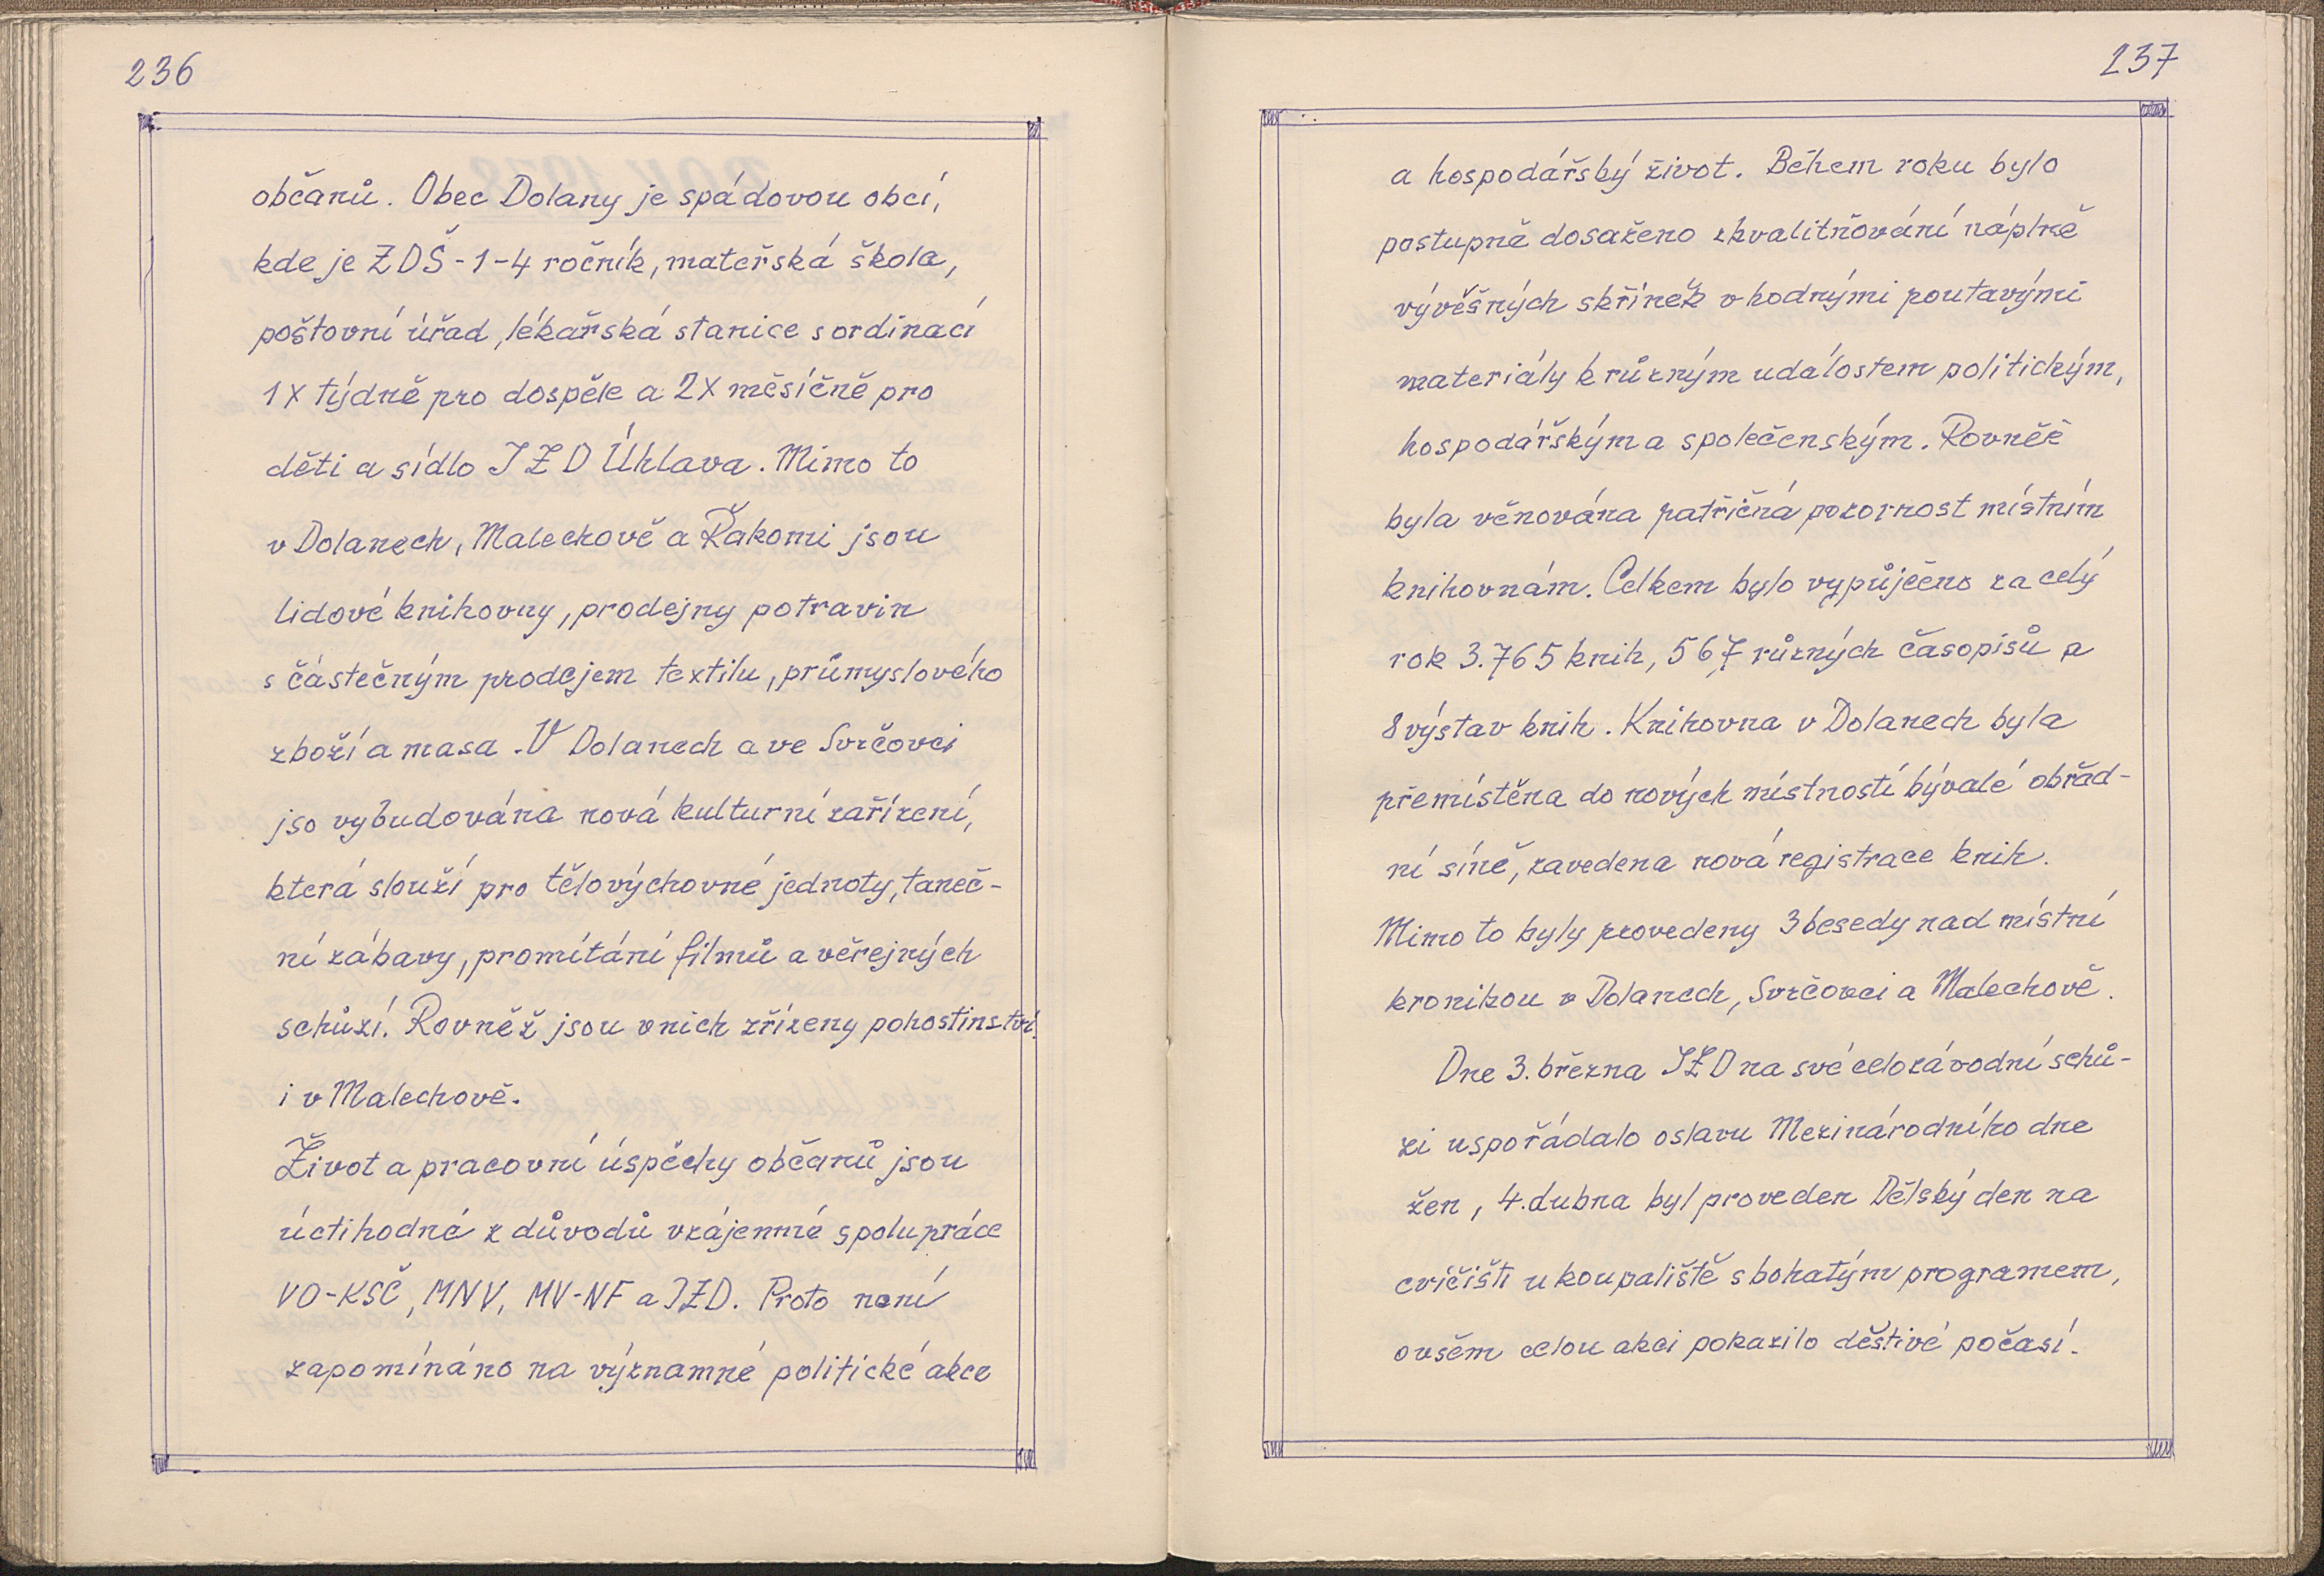 236
občanů. Obec Dolany je spádovou obcí,
kde je ZDŠ - 1-4 ročník, mateřská škola,
poštovní úřad, lékařská stanice s ordinací
1x týdně pro dospěle a 2x měsíčně pro
děti a sídlo JZD Úhlava. Mimo to
v Dolanech, Malechově a Řakomi jsou
lidové knihovny, prodejny potravin
s částečným prodejem textilu, průmyslového
zboží a masa. V Dolanech a ve Svrčovci
jso vybudována nová kulturní zařízení,
která slouží pro tělovýchovné jednoty, taneč-
ní zábavy, promítání filmů a věřejných
schůzí. Rovněž jsou v nich zřízeny pohostinství
i v Malechově.
Život a pracovní úspěchy občanů jsou
úctihodné z důvodů vzájemné spolupráce
VO-KSČ, MNV, MV-NF a JZD. Proto není
zapomínáno na významné politické akce
237
a hospodářský život. Během roku bylo
postupně dosaženo zkvalitňování náplně
vývěšných skřínek vhodnými poutavými
materiály k různým událostem politickým,
hospodářským a společenským. Rovněž
byla věnována patřičná pozornost místním
knihovnám. Celkem bylo vypůjčeno za celý
rok 3.765 knih, 567 různých časopisů a
8 výstav knih. Knihovna v Dolanech byla
přemístěna do nových místností bývalé obřad-
ní síně, zavedena nová registrace knih.
Mimo to byly provedeny 3 besedy nad místní
kronikou v Dolanech, Svrčovci a Malechově.
Dne 3. března JZD na své celozávodní schů-
zi uspořádalo oslavu Mezinárodního dne
žen, 4. dubna byl proveden Dětský den na
cvičišti u koupaliště s bohatým programem,
ovšem celou akci pokazilo děštivé počasí.